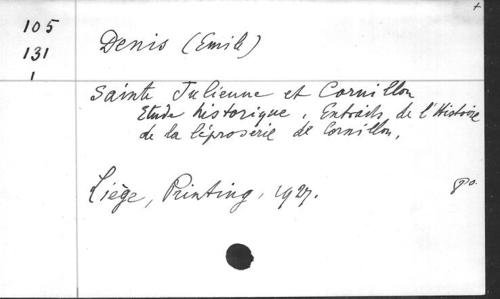 +
105
131
1
Denis (Emile)
Sainte Julienne et Cornillon
Etude historique. Extraits de l'Histoire
de la léproserie de Cornillon.
Liège, Printing, 1927.
8o.